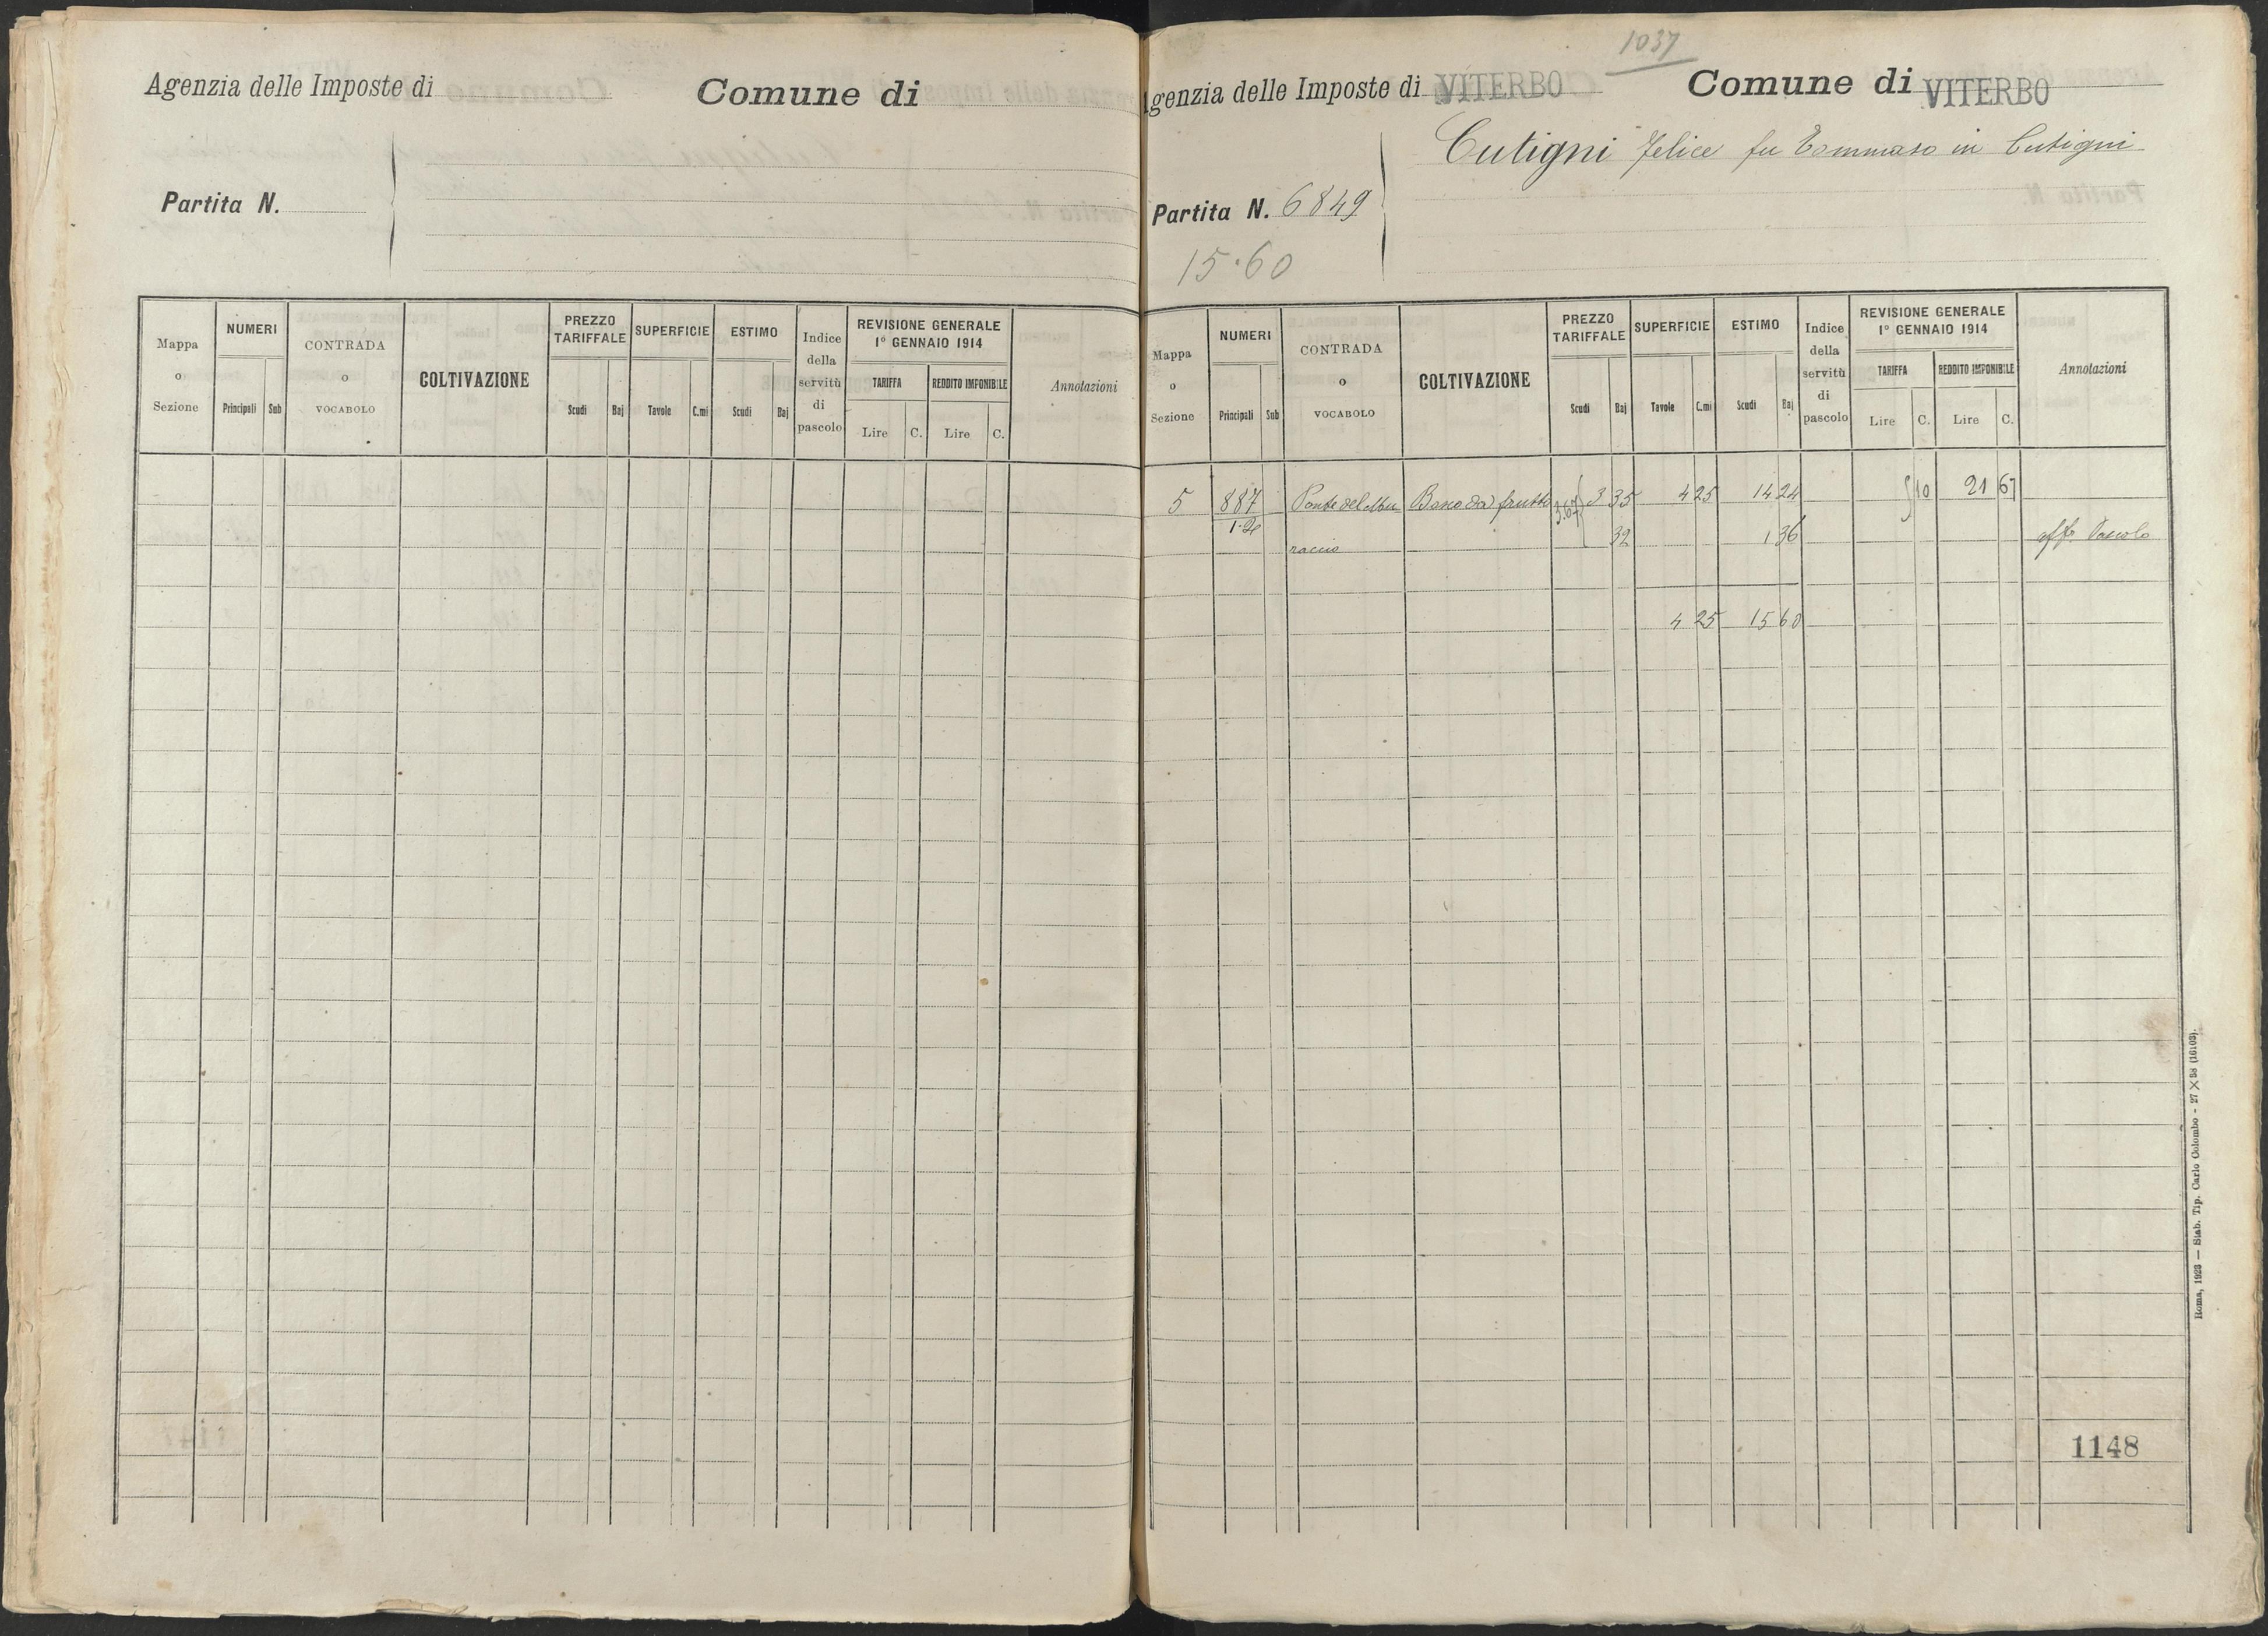 Agenzia delle Imposte di
Comune di
Partita N.
Mappa o Sezione
NUMERI
Principali
Sub
CONTRADA o VOCABOLO
COLTIVAZIONE
PREZZO TARIFFALE
Scudi
Baj
SUPERFICIE
Tavole
C.mi
ESTIMO
Scudi
Baj
Indice della servitù di pascolo
REVISIONE GENERALE
1° GENNAIO 1914
TARIFFA
REDDITO IMPONIBILE
Lire
C.
Lire
C.
Annotazioni
1037
Agenzia delle Imposte di VITERBO
Comune di VITERBO
Cutigni Felice fu Tommaso in Cutigni
Partita N. 6849
15.60
Mappa o Sezione
NUMERI
Principali
Sub
CONTRADA o VOCABOLO
COLTIVAZIONE
PREZZO TARIFFALE
Scudi
Baj
SUPERFICIE
Tavole
C.mi
ESTIMO
Scudi
Baj
Indice della servitù di pascolo
REVISIONE GENERALE
1° GENNAIO 1914
TARIFFA
REDDITO IMPONIBILE
Lire
C.
Lire
C.
Annotazioni
5 887 Ponte del frutto 3.67 3 35 4 25 14 24 10 21 67
1.2 raccio 32 1 36 Pascolo
4 25 15 60
1148
Roma, 1923 — Stab. Tip. Carlo Colombo - 27 × 38 (16103).